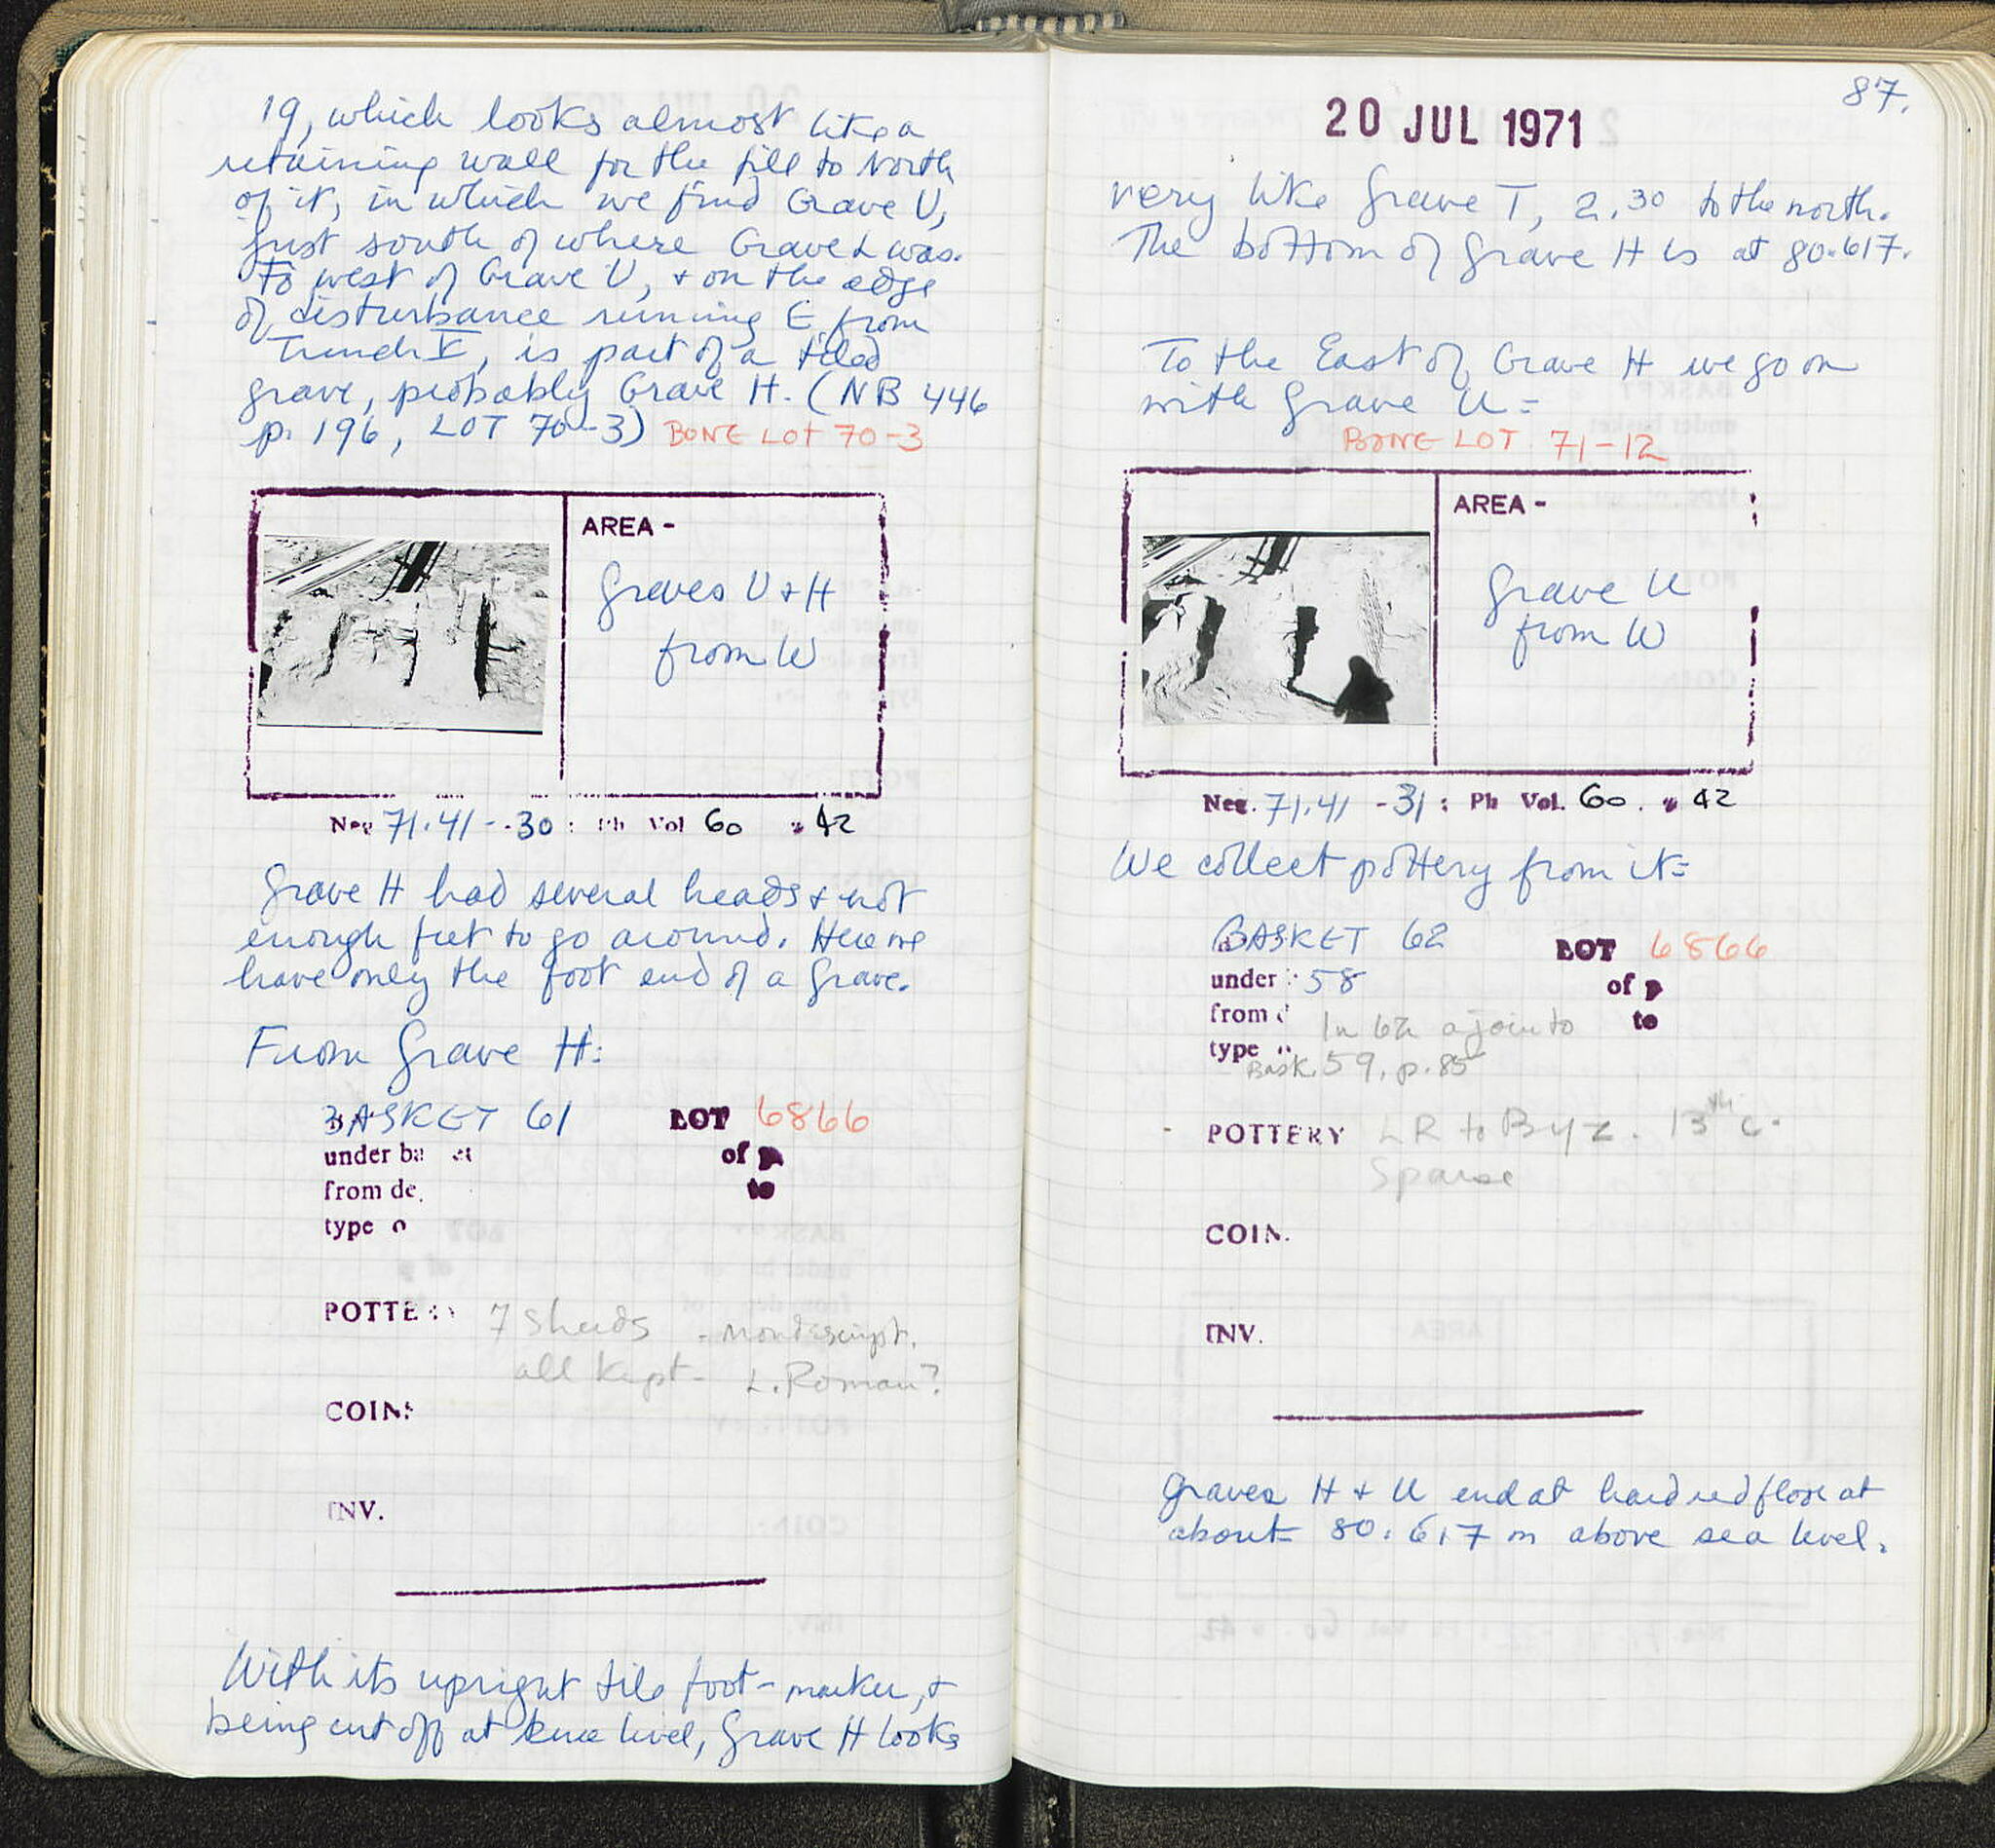 19, which looks almost like a
retaining wall for the fill to North
of it, in which we find Grave U,
just south of where Grave L was.
To west of Grave U, + on the edge
of disturbance running E from
Trench V, is part of a tiled
grave, probably Grave H. (NB 446
p. 196, LOT 70-3) BONE LOT 70-3
AREA -
Graves U + H
from W
Neg 71.41 - 30 : Ph Vol 60 42
Grave H had several heads + not
enough feet to go around. Here we
have only the foot end of a grave.
From Grave H:
BASKET 61 LOT 6866
under ba et of p
from de to
type o
POTTE 7 sherds - nondescript.
all kept - L. Roman?
COINS
INV.
With its upright tile foot-marker, +
being cut off at knee level, Grave H looks
87.
20 JUL 1971
very like Grave T, 2.30 to the north.
The bottom of Grave H is at 80.617.
To the East of Grave H we go on
with Grave U =
BONE LOT 71-12
AREA -
Grave U
from W
Neg. 71.41 - 31 : Ph Vol. 60. 42
We collect pottery from it =
BASKET 62 LOT 6866
under 58 of p
from d In 62 a join to to
type Bask. 59, p. 85
POTTERY LR to Byz. 13th c.
Sparse
COIN.
INV.
Graves H + U end at hard red floor at
about 80.617 m above sea level.